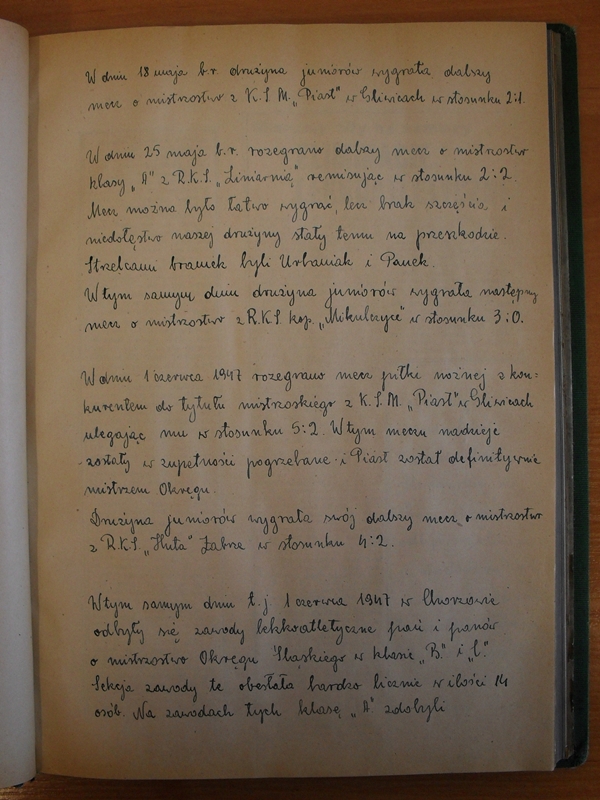 W dniu 18 maja b.r. drużyna juniorów wygrała dalszy
mecz o mistrzostwo z K.S.M. „Piast" w Gliwicach w stosunku 2:1.
W dniu 25 maja b.r. rozegrano dalszy mecz o mistrzostwo
klasy „A" z R.K.S. „Liniarnią" remisując w stosunku 2:2.
Mecz można było łatwo wygrać, lecz brak szczęścia i
niedołęstwo naszej drużyny stały temu na przeszkodzie.
Strzelcami bramek byli Urbaniak i Panek.
W tym samym dniu drużyna juniorów wygrała następny
mecz o mistrzostwo z R.K.S. kop. „Mikulczyce" w stosunku 3:0.
W dniu 1 czerwca 1947 rozegrano mecz piłki nożnej z kon=
kurentem do tytułu mistrzoskiego z K.S.M. „Piast" w Gliwicach
ulegając mu w stosunku 5:2. W tym meczu nadzieje
zostały w zupełności pogrzebane i Piast został definitywnie
mistrzem Okręgu.
Drużyna juniorów wygrała swój dalszy mecz o mistrzostwo
z R.K.S. „Huta" Zabrze w stosunku 4:2.
W tym samym dniu t.j. 1 czerwca 1947 w Chorzowie
odbyły się zawody lekkoatletyczne pań i panów
o mistrzostwo Okręgu Śląskiego w klasie „B" i „C".
Sekcja zawody te obesłała bardzo licznie w ilości 14
osób. Na zawodach tych klasę „A" zdobyli